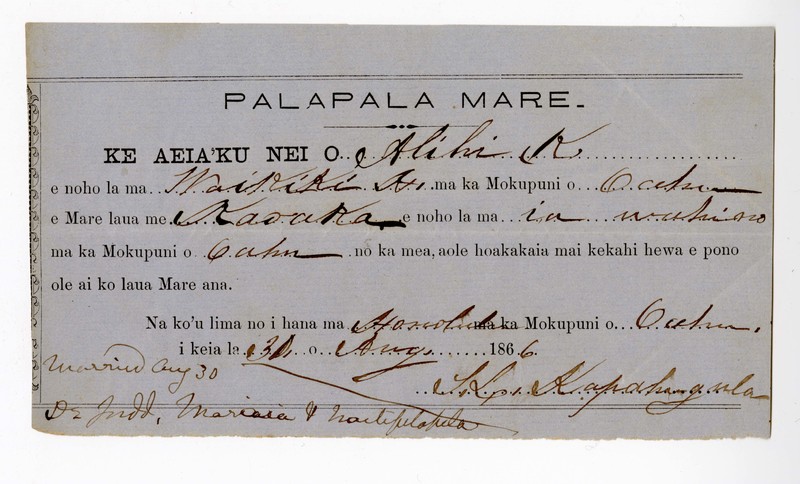 PALAPALA MARE.
KE AEIA'KU NEI O Alihi K
e noho la ma Waikiki H. ma ka Mokupuni o Oahu
e Mare laua me Kavaka e noho la ma ia wahi no
ma ka Mokupuni o Oahu no ka mea, aole hoakakaia mai kekahi hewa e pono
ole ai ko laua Mare ana.
Na ko'u lima no i hana ma Honolulu ma ka Mokupuni o Oahu.
i keia la 30 o Aug. 1866.
Married Aug 30
Dr Judd, &